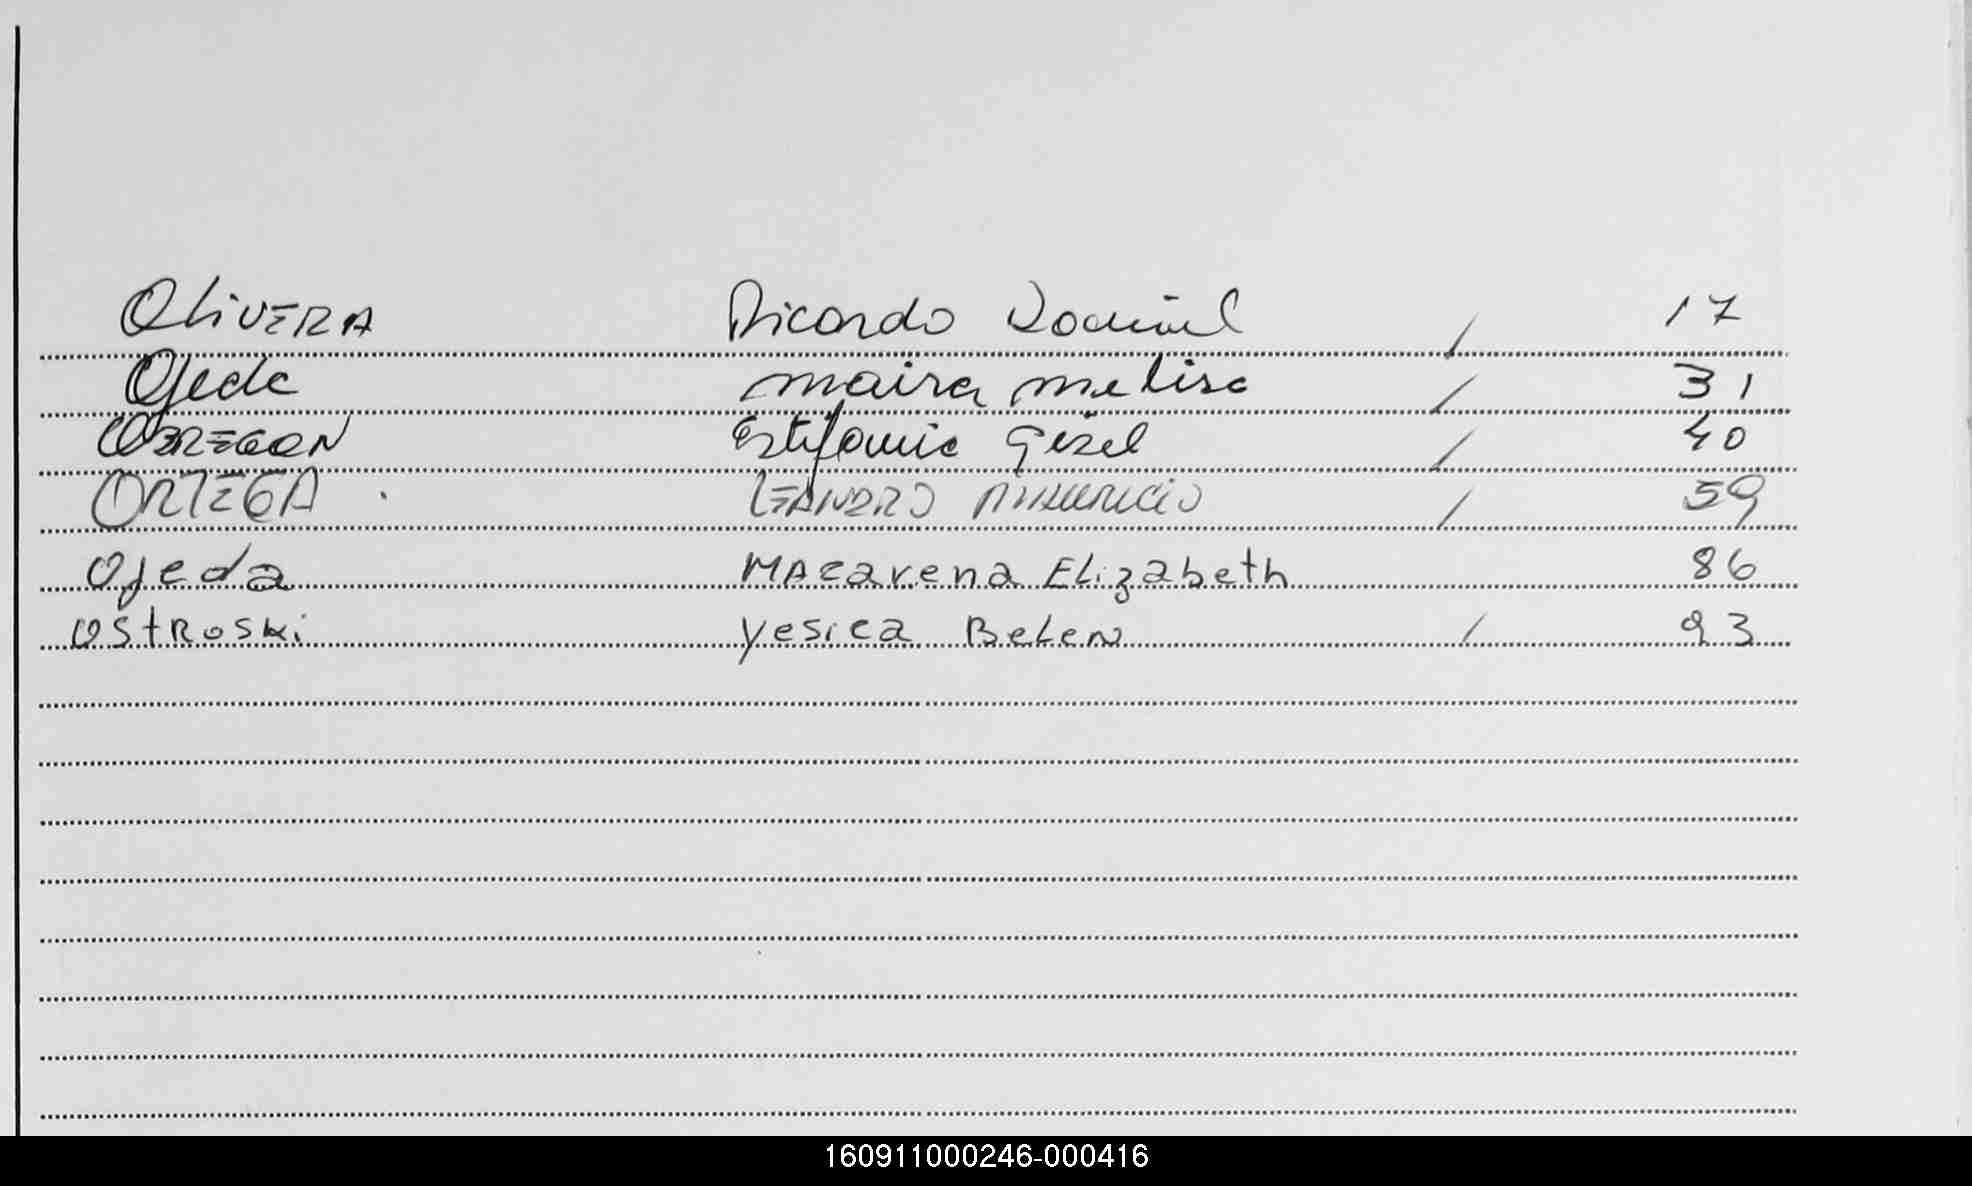 OLIVERA Ricardo Daniel / 17
Ojeda Maira Melisa / 31
OBREGON Estefania Gisel / 40
ORTEGA LEANDRO MAURICIO / 59
Ojeda MACarena ELizabeth 86
OStRoSki Yesica BeLen / 93
160911000246-000416